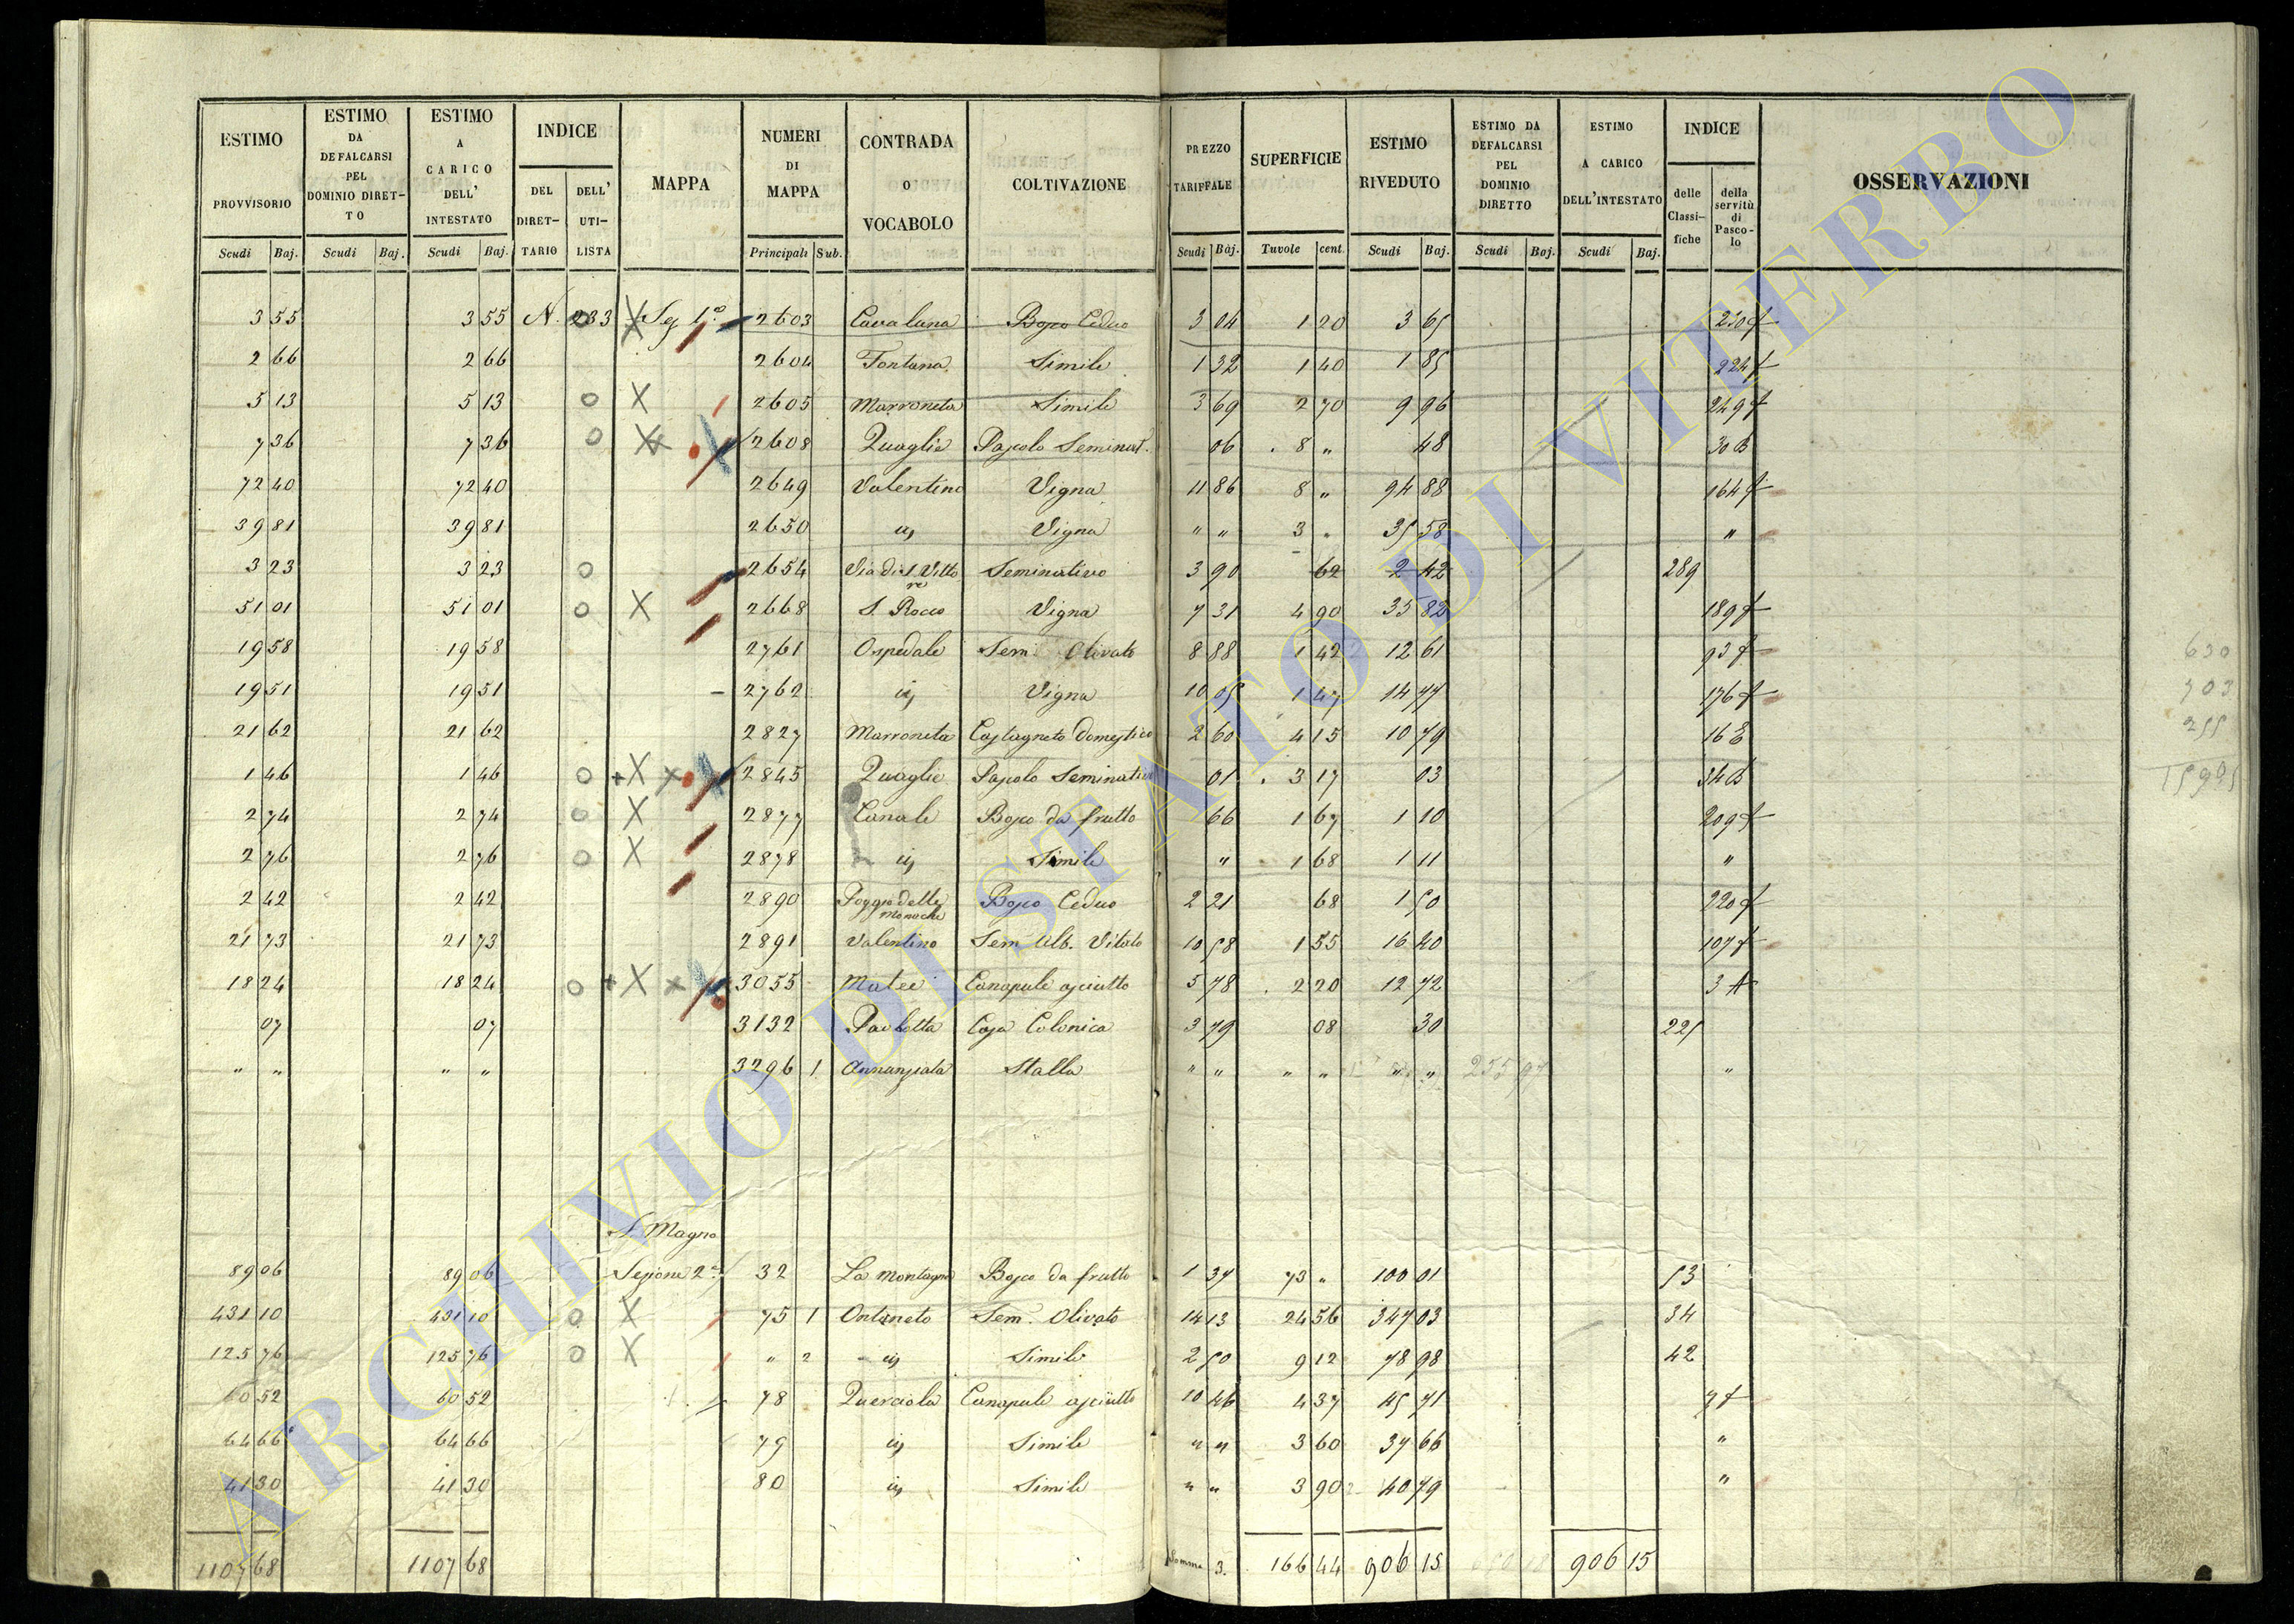 ESTIMO PROVVISORIO
ESTIMO DA DEFALCARSI PEL DOMINIO DIRET-TO
ESTIMO A CARICO DELL' INTESTATO
INDICE
DEL DIRET-TARIO
DELL' UTI-LISTA
MAPPA
NUMERI DI MAPPA
CONTRADA O VOCABOLO
COLTIVAZIONE
PREZZO TARIFFALE
SUPERFICIE
ESTIMO RIVEDUTO
ESTIMO DA DEFALCARSI PEL DOMINIO DIRETTO
ESTIMO A CARICO DELL'INTESTATO
INDICE
delle Classi-fiche
della servitù di Pasco-lo
OSSERVAZIONI
Scudi Baj. Scudi Baj. Scudi Baj. Principali Sub. Scudi Baj. Tavole cent. Scudi Baj. Scudi Baj. Scudi Baj.
3 55 3 55 N. 233 Sez 1a 2603 Cavaluna Bosco Ceduo 3 04 1 20 3 65 230 f
2 66 2 66 2604 Fontana Simile 1 32 1 40 1 85 224 f
5 13 5 13 2605 Marroneta Simile 3 69 2 70 9 96 249 f
7 36 7 36 2608 Quaglie Pascolo Seminat. 06 8 " 48 30 B
72 40 72 40 2649 Valentino Vigna 11 86 8 " 94 88 164 f
39 81 39 81 2650 id Vigna " " 3 " 35 58 "
3 23 3 23 2654 Via di S. Vittore Seminativo 3 90 62 2 42 289
51 01 51 01 2668 S. Rocco Vigna 7 31 4 90 35 82 189 f
19 58 19 58 2761 Ospedale Sem. Olivato 8 88 1 42 12 61 93 f
19 51 19 51 2762 id Vigna 10 05 1 47 14 77 176 f
21 62 21 62 2827 Marroneta Castagneto domestico 2 60 4 15 10 79 16 E
1 46 1 46 2845 Quaglie Pascolo Seminativo 01 3 17 03 34 B
2 74 2 74 2877 Canale Bosco da frutto 66 1 67 1 10 209 f
2 76 2 76 2878 id Simile " 1 68 1 11 "
2 42 2 42 2890 Poggio delle Monache Bosco Ceduo 2 21 68 1 50 220 f
21 73 21 73 2891 Valentino Sem. Alb. Vitato 10 58 1 55 16 40 107 f
18 24 18 24 3055 Matee Canapule asciutto 5 78 2 20 12 72 3 A
07 07 3132 Paoletta Casa Colonica 3 79 08 30 225
" " " " 3296 1 Annunziata Stalla " " " " " " 255 97 "
S. Magno
89 06 89 06 Sezione 2a 32 La Montagna Bosco da frutto 1 37 73 " 100 01 53
431 10 431 10 75 1 Ontaneto Sem. Olivato 14 13 24 56 347 03 34
125 76 125 76 " 2 id Simile 2 50 9 12 78 98 42
60 52 60 52 78 Querciola Canapule asciutto 10 46 4 37 45 71 7 f
64 66 64 66 79 id Simile " " 3 60 37 66 "
41 30 41 30 80 id Simile " " 3 90 40 79 "
1107 68 1107 68 Somma 3. 166 44 906 15 906 15
630
703
255
ARCHIVIO DI STATO DI VITERBO